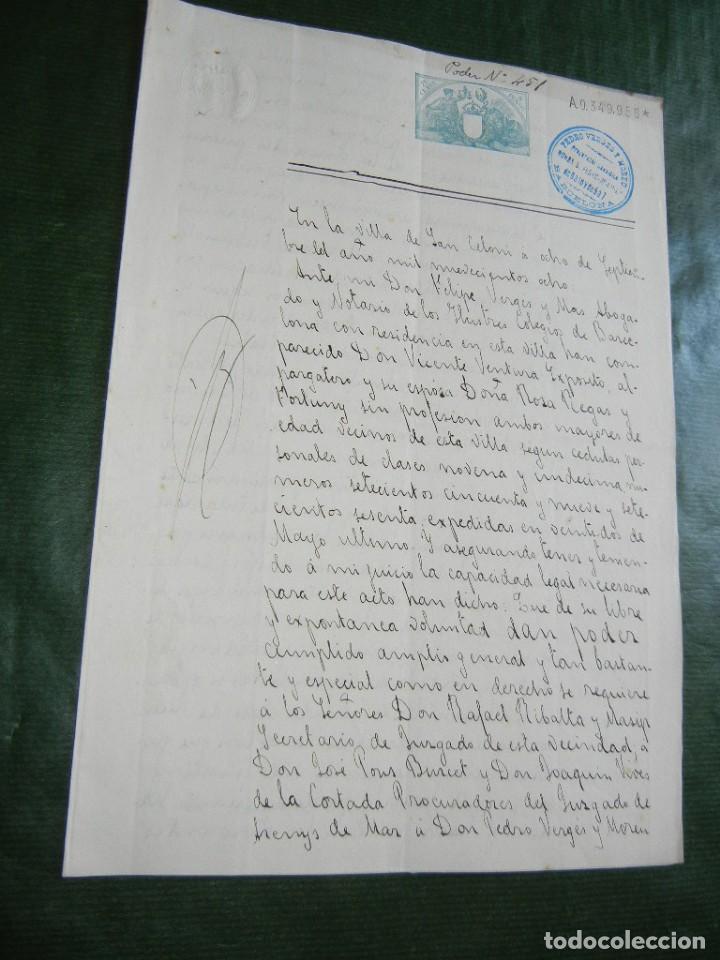 Poder Nº 451
A.0.349.956*
PEDRO VERGES Y MOREU
BARCELONA
En la villa de San Celoni á ocho de Septiem-
bre del año mil nuevecientos ocho.
Ante mi Don Felipe Verges y Mas Aboga-
do y Notario de los Ilustres Colegios de Barce-
lona con residencia en esta villa han com-
parecido Don Vicente Ventura Exposito, al-
pargatero y su esposa Doña Rosa Regas y
Fortuny sin profesion ambos mayores de
edad vecinos de esta villa segun cedulas per-
sonales de clases novena y undecima nu-
meros setecientos cincuenta y nueve y sete-
cientos sesenta expedidas en veintidos de
Mayo ultimo. Y asegurando tener y tenien-
do á mi juicio la capacidad legal necesaria
para este acto han dicho: Que de su libre
y expontanea voluntad dan poder
cumplido amplio general y tan bastan-
te y especial como en derecho se requiere
á los Señores Don Rafael Ribalta y Masip
Secretario de Juzgado de esta vecindad á
Don José Pons Buscet y Don Joaquin Vives
de la Cortada Procuradores del Juzgado de
Arenys de Mar á Don Pedro Verges y Moreu
todocoleccion.net